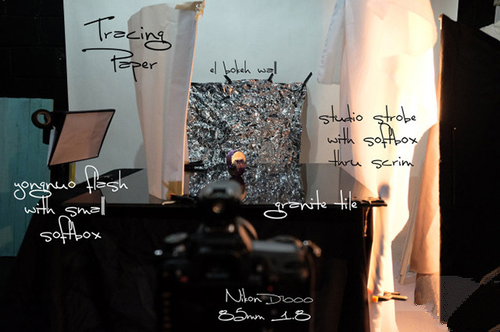 Tracing
Paper
el bokeh wall
studio strobe
with softbox
thru scrim
yongnuo flash
with small
softbox
granite tile
Nikon D7000
85mm 1.8